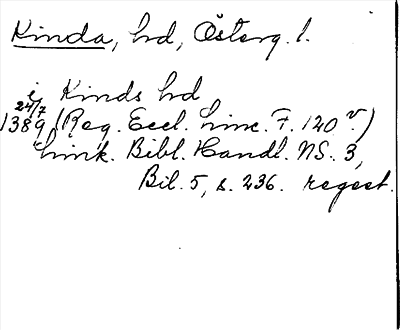 Kinda, hd, Österg. l.
i Kinds hd
24/7
1389 (Reg. Eccl. Linc. F. 120 v.)
Link. Bibl. Handl. NS. 3,
Bil. 5, s. 236. regest.